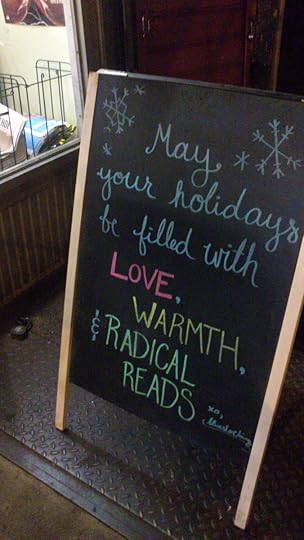 May
your holidays
be filled with
LOVE,
WARMTH,
& RADICAL
READS
xo,